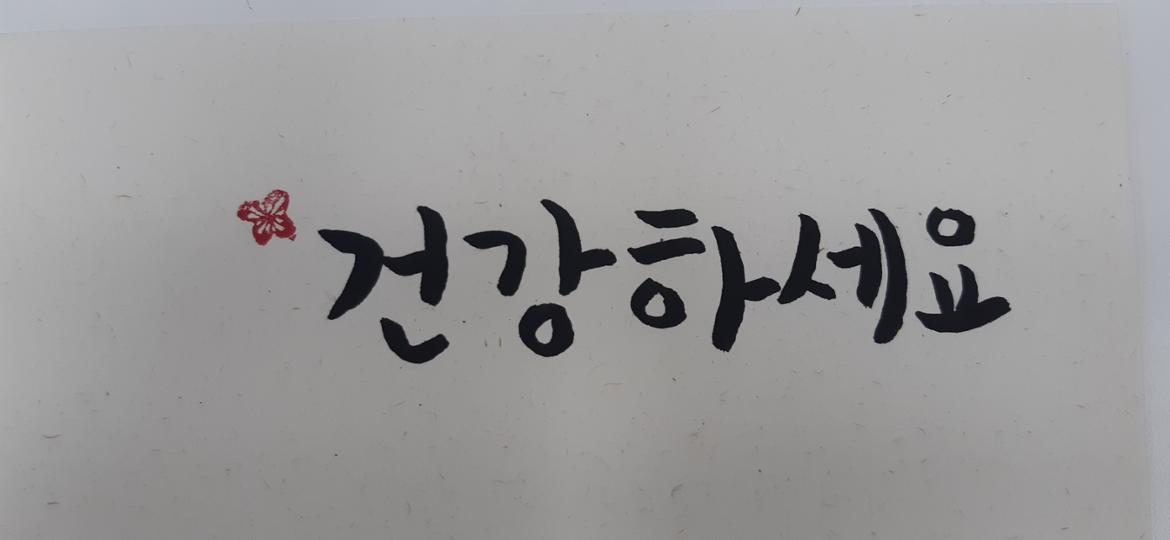 건강하세요